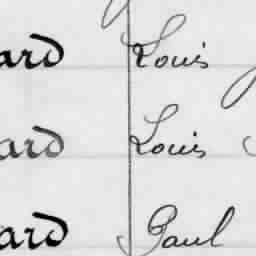 ard Louis
ard Louis
ard Paul